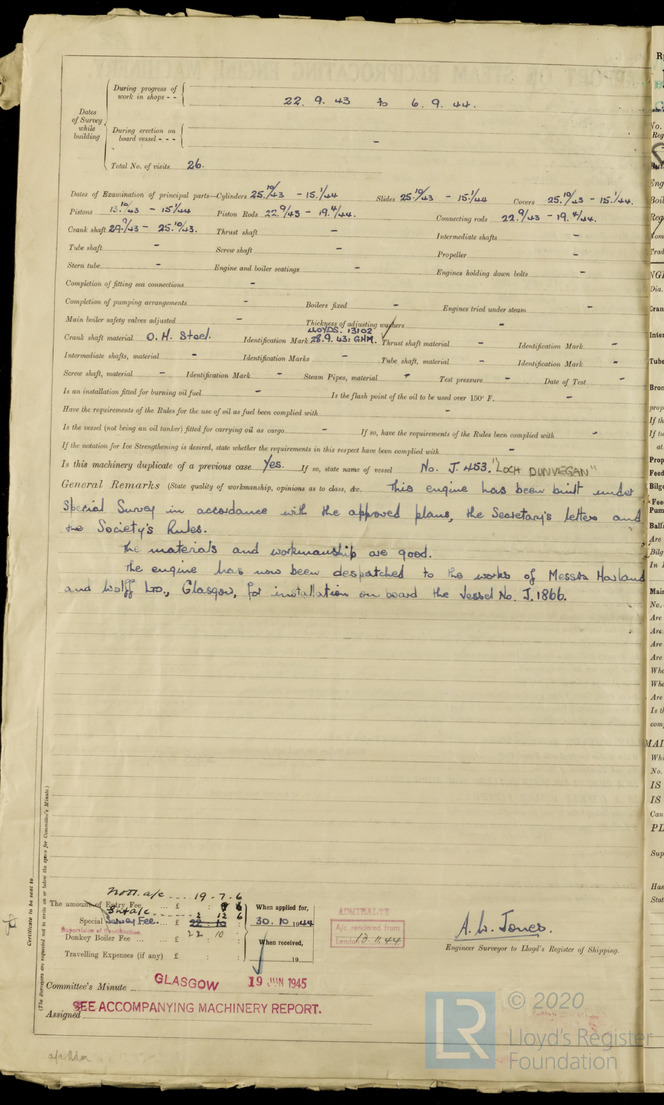 During progress of
work in shops - -
22. 9. 43 to 6. 9. 44.
Dates
of Survey
while
building
During erection on
board vessel - - -
-
Total No. of visits 26.
Dates of Examination of principal parts—Cylinders 25.10/43 - 15.1/44 Slides 25.10/43 - 15.1/44 Covers 25.10/43 - 15.1/44.
Pistons 15.10/43 - 15.1/44 Piston Rods 22.9/43 - 19.4/44. Connecting rods 22.9/43 - 19.4/44.
Crank shaft 29.9/43 - 25.10/43. Thrust shaft - Intermediate shafts -
Tube shaft - Screw shaft - Propeller -
Stern tube - Engine and boiler seatings - Engines holding down bolts -
Completion of fitting sea connections -
Completion of pumping arrangements - Boilers fixed - Engines tried under steam -
Main boiler safety valves adjusted - Thickness of adjusting washers -
LLOYDS. 13102
Crank shaft material O. H. Steel. Identification Mark 28.9.43. GHM. Thrust shaft material - Identification Mark -
Intermediate shafts, material - Identification Marks - Tube shaft, material - Identification Mark -
Screw shaft, material - Identification Mark - Steam Pipes, material - Test pressure - Date of Test -
Is an installation fitted for burning oil fuel - Is the flash point of the oil to be used over 150° F. -
Have the requirements of the Rules for the use of oil as fuel been complied with -
Is the vessel (not being an oil tanker) fitted for carrying oil as cargo - If so, have the requirements of the Rules been complied with -
If the notation for Ice Strengthening is desired, state whether the requirements in this respect have been complied with -
Is this machinery duplicate of a previous case Yes. If so, state name of vessel No. J. 453. "LOCH DUNVEGAN"
General Remarks (State quality of workmanship, opinions as to class, &c. This engine has been built under
Special Survey in accordance with the approved plans, the Secretary's letters and
the Society's Rules.
The materials and workmanship are good.
The engine has now been despatched to the works of Messrs Harland
and Wolff Ltd., Glasgow, for installation on board the Vessel No. J. 1866.
Certificate to be sent to
(The Surveyors are requested not to write on or below the space for Committee's Minute.)
Nott. a/c ... 19 - 7 - 6
The amount of Entry Fee ... £
Special Survey Fee ... £ 22 10
Supervision of Construction
22 10
Donkey Boiler Fee ... £
Travelling Expenses (if any) £
When applied for,
30. 10 1944
When received,
19
ADMIRALTY
A/c. rendered from
London 13.11.44
A. W. Jones.
Engineer Surveyor to Lloyd's Register of Shipping.
Committee's Minute GLASGOW 19 JUN 1945
Assigned SEE ACCOMPANYING MACHINERY REPORT.
LR © 2020
Lloyd's Register
Foundation